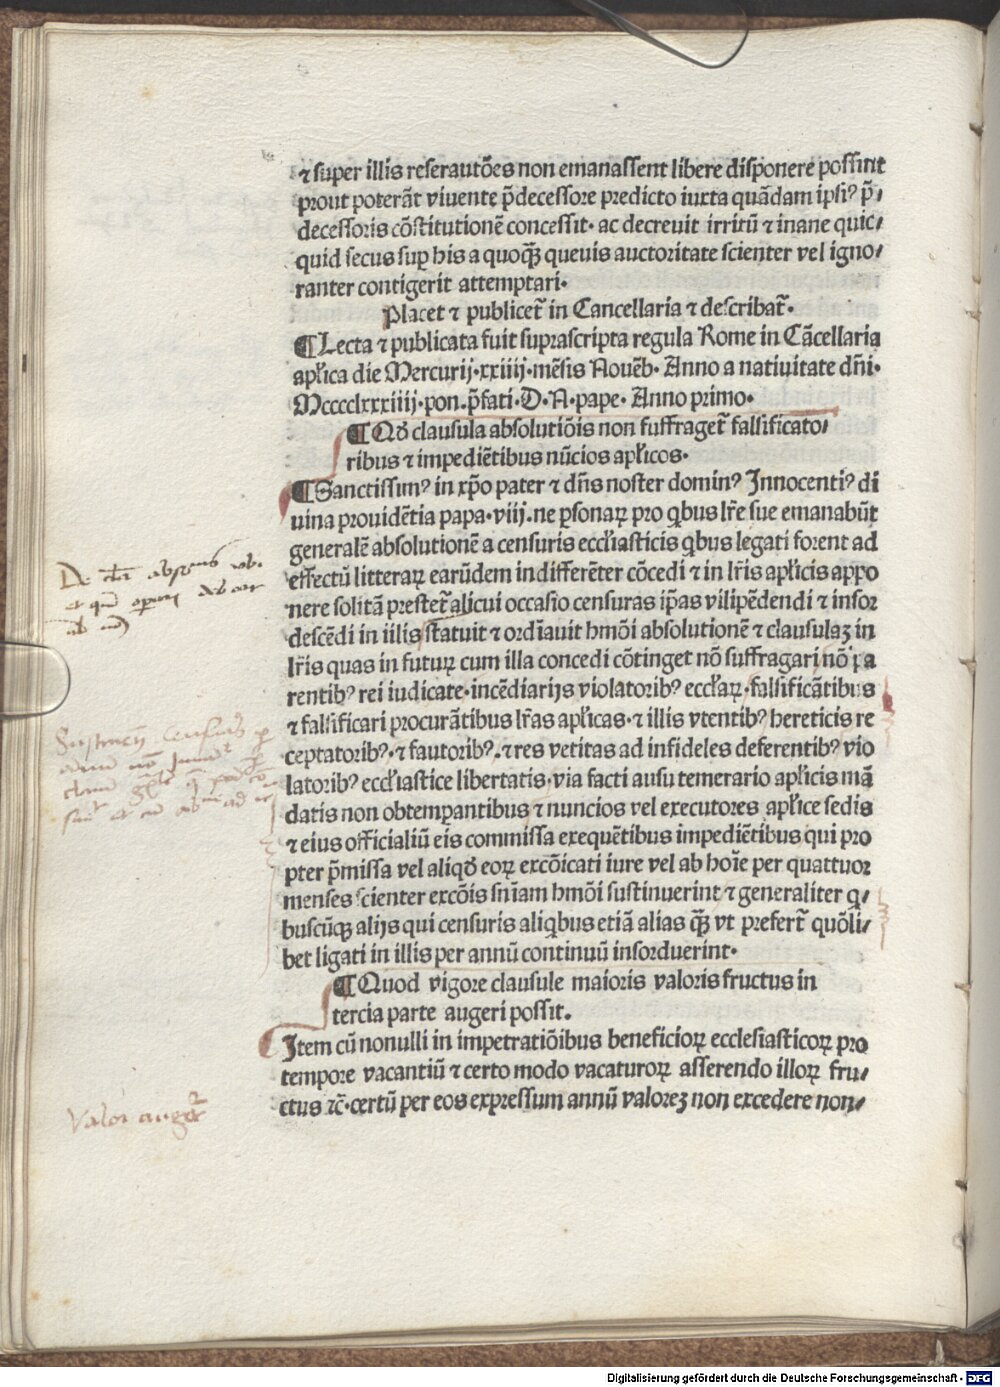 ⁊ super illis reserautōes non emanassent libere disponere possint
prout poterāt viuente p̄decessore predicto iuxta quādam ipsiꝰ p̄⸗
decessoris cōstitutionē concessit· ac decreuit irritū ⁊ inane quic⸗
quid secus suꝑ his a quoqꝫ queuis auctoritate scienter vel igno⸗
ranter contigerit attemptari·
Placet ⁊ publicet̄ in Cancellaria ⁊ describat̄·
¶ Lecta ⁊ publicata fuit suprascripta regula Rome in Cācellaria
apl̄ica die Mercurij·xxiiij·mēsis Nouēb· Anno a natiuitate dn̄i·
Mcccclxxxiiij·pon.p̄fati·D·N·pape· Anno primo·
¶ Qd̄ clausula absolutiōis non suffraget̄ falsificato⸗
ribus ⁊ impediētibus nūcios apl̄icos·
¶ Sanctissimꝰ in xp̄o pater ⁊ dn̄s noster dominꝰ Innocentiꝰ di
uina prouidētia papa·viij.ne ꝑsonaꝝ pro qbus lr̄e sue emanabūt
generalē absolutionē a censuris eccl̄iasticis qbus legati forent ad
effectū litteraꝝ earūdem indifferēter cōcedi ⁊ in lr̄is apl̄icis appo
nere solitā prestet̄ alicui occasio censuras ip̄as vilipēdendi ⁊ insor
descēdi in illis statuit ⁊ ordīauit hmōi absolutionē ⁊ clausulaꝫ in
lr̄is quas in futuꝝ cum illa concedi cōtinget nō suffragari nō pa
rentibꝰ rei iudicate·incēdiarijs violatoribꝰ eccl̄aꝝ·falsificātibus
⁊ falsificari procurātibus lr̄as apl̄icas·⁊ illis vtentibꝰ hereticis re
ceptatoribꝰ·⁊ fautoribꝰ·⁊ res vetitas ad infideles deferentibꝰ vio
latoribꝰ eccl̄iastice libertatis·via facti ausu temerario apl̄icis mā
datis non obtemꝑantibus ⁊ nuncios vel executores apl̄ice sedis
⁊ eius officialiū eis commissa exequētibus impediētibus qui pro
pter p̄missa vel aliqd̄ eoꝝ excōicati iure vel ab hoīe per quattuor
menses scienter excōis sn̄iam hmōi sustinuerint ⁊ generaliter q⸗
buscūqꝫ alijs qui censuris aliqbus etiā alias qꝫ vt prefert̄ quōli⸗
bet ligati in illis per annū continuū insorduerint·
¶ Quod vigore clausule maioris valoris fructus in
tercia parte augeri possit.
Item cū nonulli in impetratiōibus beneficioꝝ ecclesiasticoꝝ pro
tempore vacantiū ⁊ certo modo vacaturoꝝ asserendo illoꝝ fru⸗
ctus ⁊c̄·certū per eos expressum annū valoreꝫ non excedere non⸗
Valor auget̄
Digitalisierung gefördert durch die Deutsche Forschungsgemeinschaft · DFG